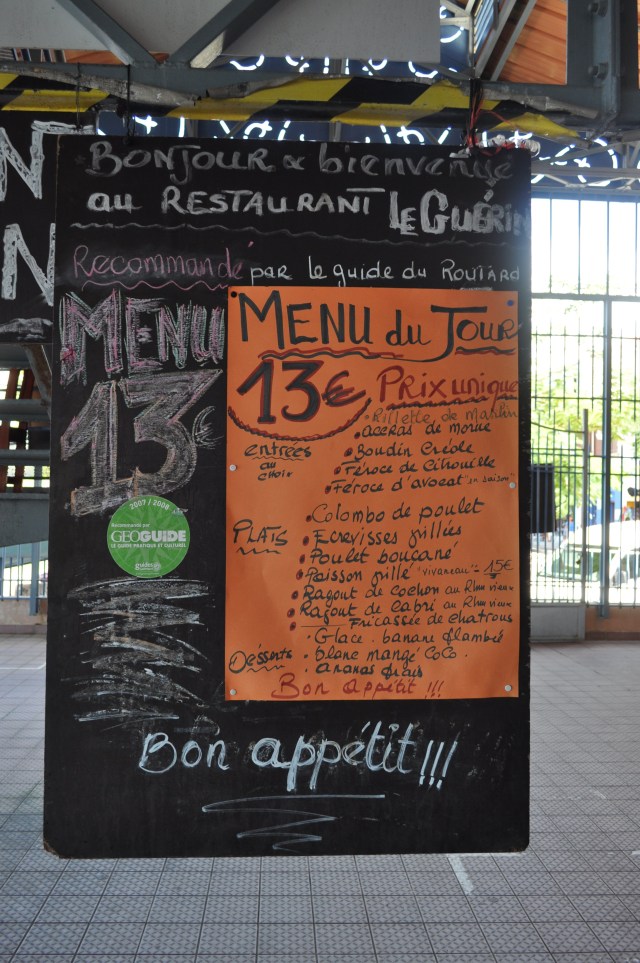 BONJOUR & bienvenue
au RESTAURANT LE GUÉRIN
Recommandé par le guide du ROUTARD
MENU
13€
2007 / 2008
Recommandé par
GEOGUIDE
LE GUIDE PRATIQUE ET CULTUREL
MENU du JOUR
13€ PRIX unique
entrées
au
choix
• Rillette de maulin
• accras de morue
• Boudin Créole
• Féroce de Citrouille
• Féroce d'avocat "en saison"
PLATS
• Colombo de poulet
• Ecrevisses grillées
• Poulet boucané
• Poisson grillé "vivaneau" = 15€
• Ragout de cochon au Rhum vieux
• Ragout de cabri au Rhum vieux
• Fricassée de chatrous
Désserts
• Glace . banane flambée
• blanc mangé COCO .
• ananas frais
Bon appétit !!!
Bon appétit !!!
N
N